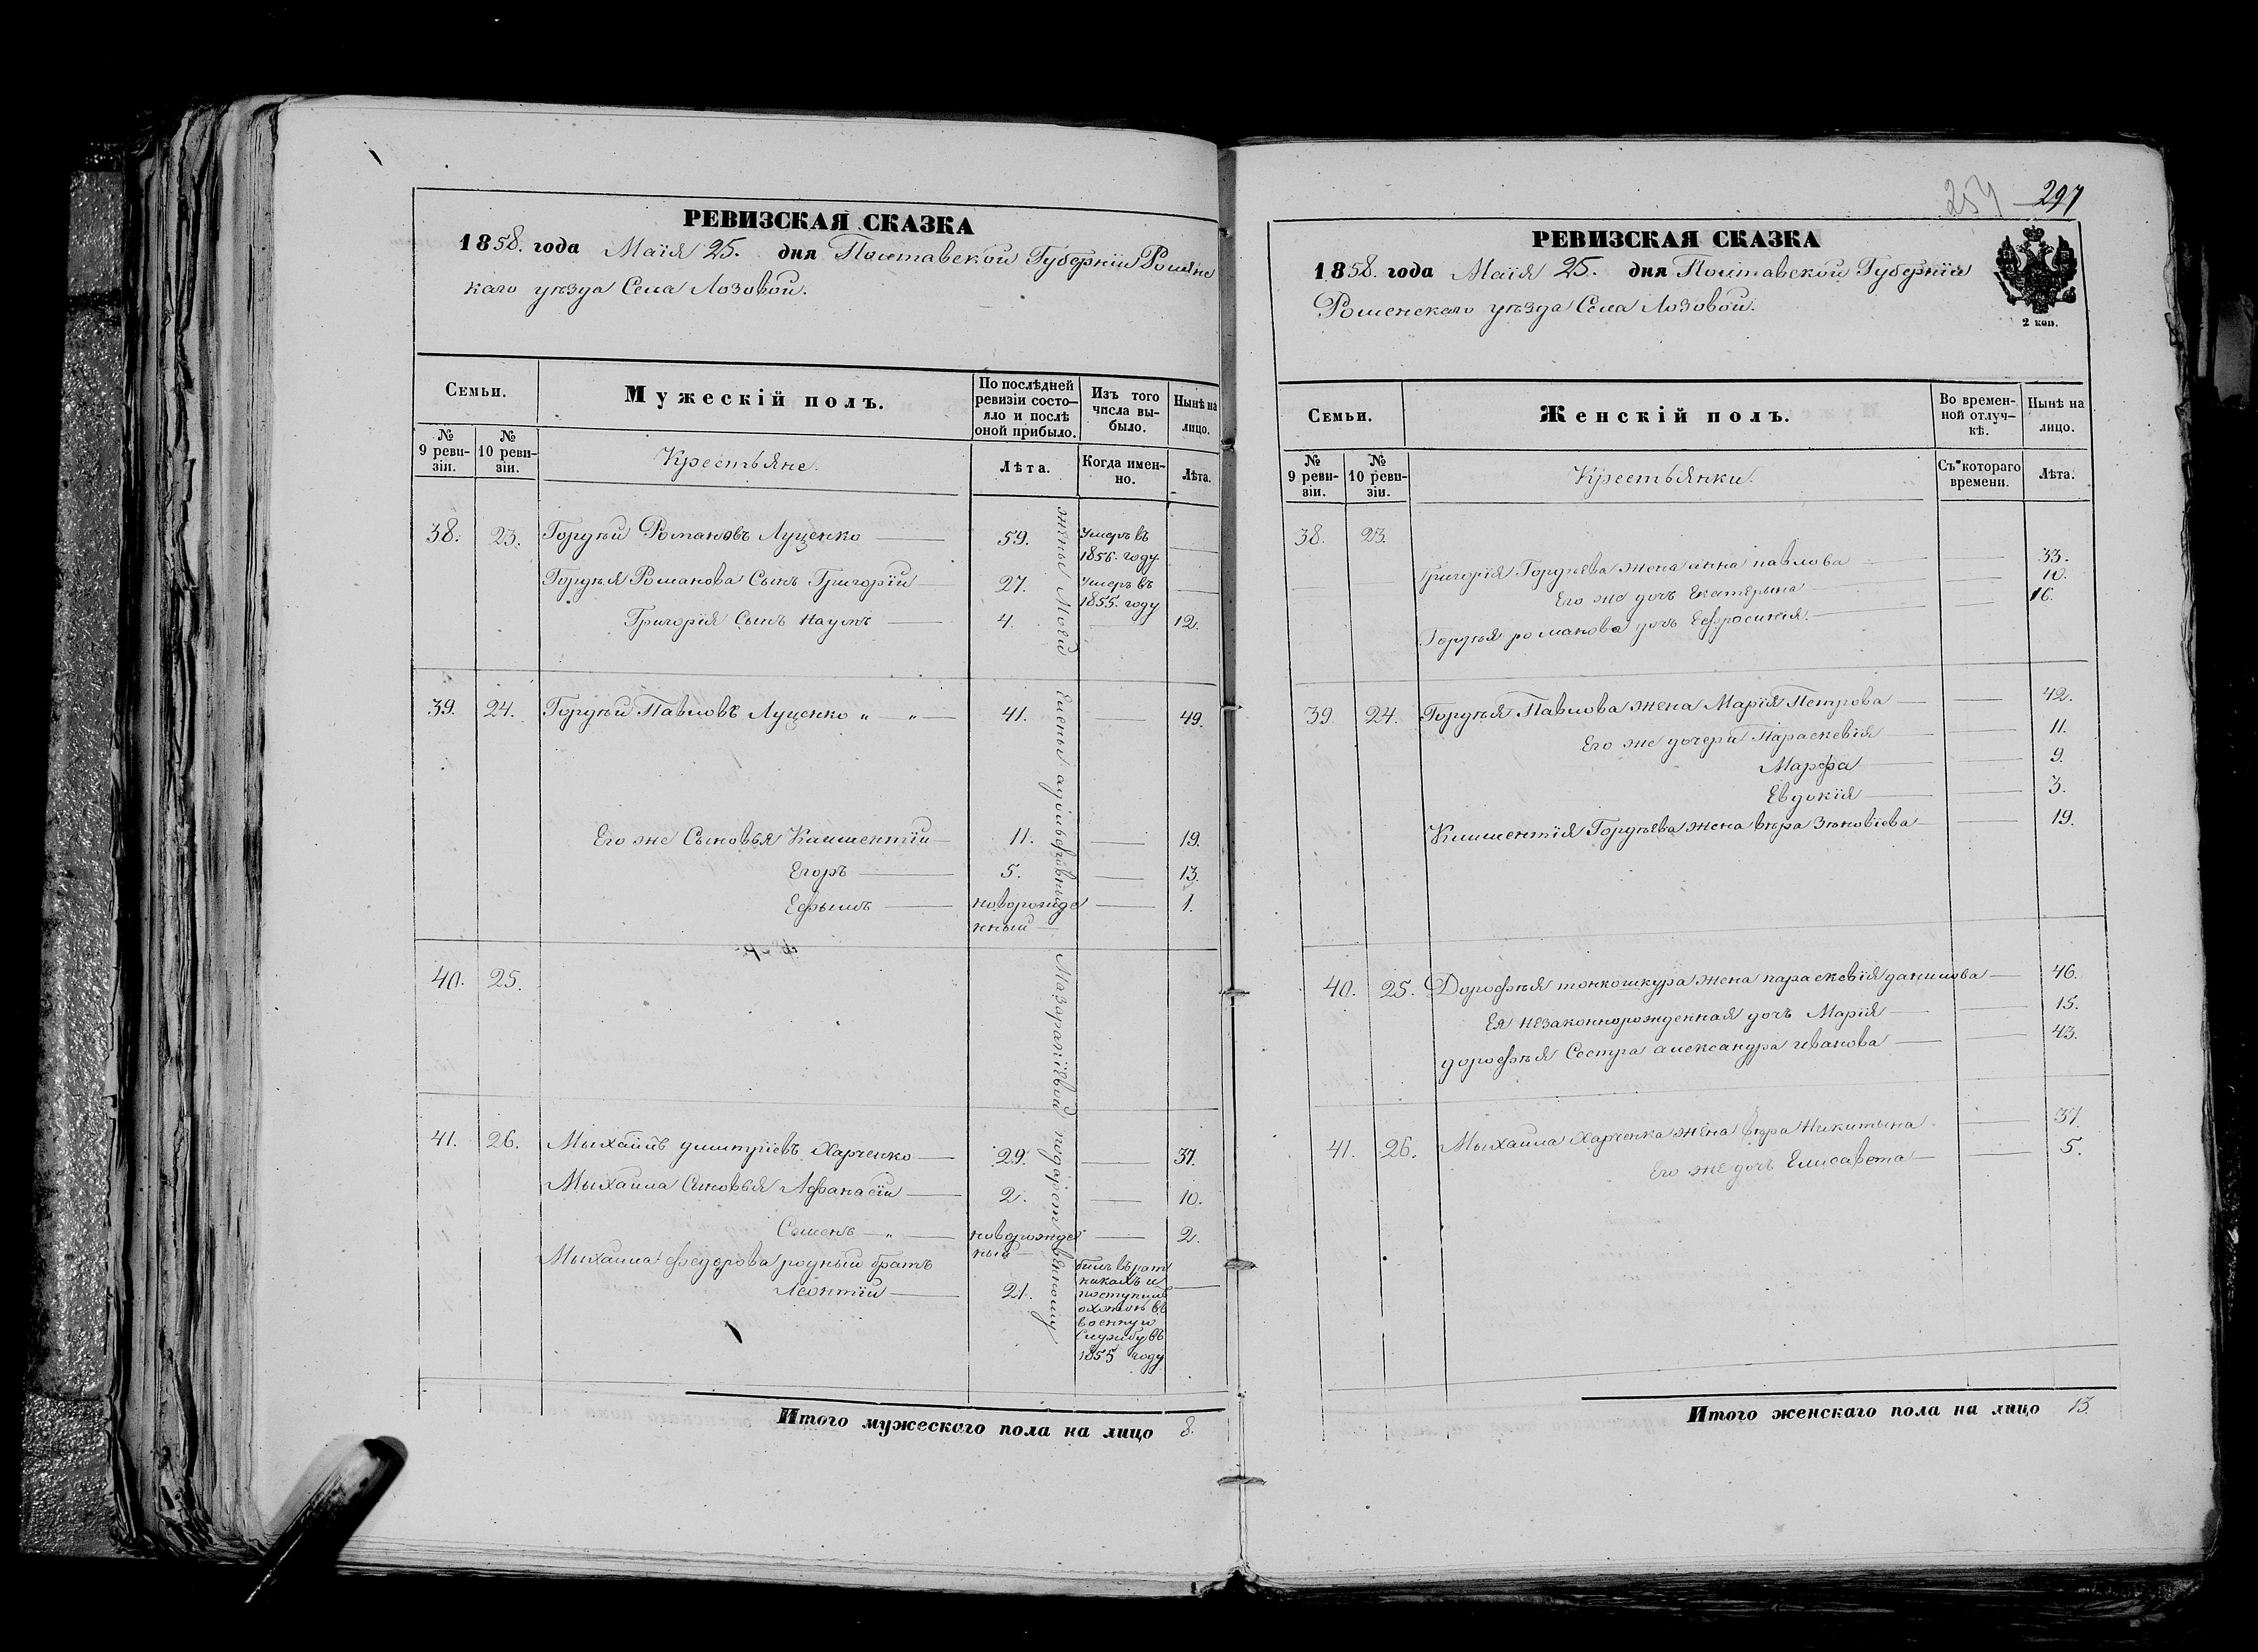 РЕВИЗСКАЯ СКАЗКА
1858. года Маія 25. дня Полтавской Губерніи Роменс
каго уѣзда Села Лозовой.
Семьи.
Мужескій полъ.
По послѣдней ревизіи состо-яло и послѣ оной прибыло.
Изъ того числа вы-было.
Нынѣ на лицо.
№ 9 реви-зіи.
№ 10 реви-зіи.
Крестьяне.
Лѣта.
Когда имен-но.
Лѣта.
38. 23. Гордѣй Романовъ Луценко 59. Умеръ въ 1856. году
Гордѣя Романова Сынъ Григорій 27. Умеръ въ 1855. году
Григорія Сынъ Наумъ 4. 12.
39. 24. Гордѣй Павловъ Луценко " " 41. 49.
Его же Сыновья Климентій 11. 19.
Егоръ 5. 13.
Ефымъ новорожде 1.
нный
40. 25.
41. 26. Мыхаилъ дмитріевъ Харченко 29. 37.
Мыхаила Сыновья Афанасій 2. 10.
Семенъ " новорожде 2.
ный
Мыхаила федорова родный братъ
Леонтій 21.
былъ въ рат
никахъ и
поступилъ
въ
военную
Службу въ
1855 году
жены Моей Елены
Мазаракіевой
Итого мужескаго пола на лицо 8.
254 297
РЕВИЗСКАЯ СКАЗКА
1858. года Маія 25. дня Полтавской Губерніи
Роменскаго уѣзда Села Лозовой.
2 коп.
Семьи.
Женскій полъ.
Во времен-ной отлуч-кѣ.
Нынѣ на лицо.
№ 9 реви-зіи.
№ 10 реви-зіи.
Крестьянки.
Съ котораго времени.
Лѣта.
38. 23.
Григорія Гордѣева жена анна павлова 33.
Его же дочь Екатерына 10.
Гордѣя романова дочь Ефросинія. 16.
39. 24. Гордѣя Павлова жена Марія Петрова 42.
Его же дочери Параскевія 11.
Марфа 9.
Евдокія 3.
Климентія Гордѣева жена вѣра Зѣновіева 19.
40. 25. Дорофѣя тонкошкура жена параскевія данилова 46.
Ея незаконнорожденная дочь Марія 15.
дорофѣя Сестра александра иванова 43.
41. 26. Мыхаила Харченка жена вѣра Никитына 37.
Его же дочь Елисавета 5.
Итого женскаго пола на лицо 13.